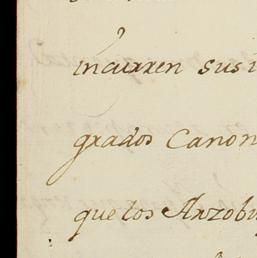 incurren sus i
grados Canon
que los Arzobis